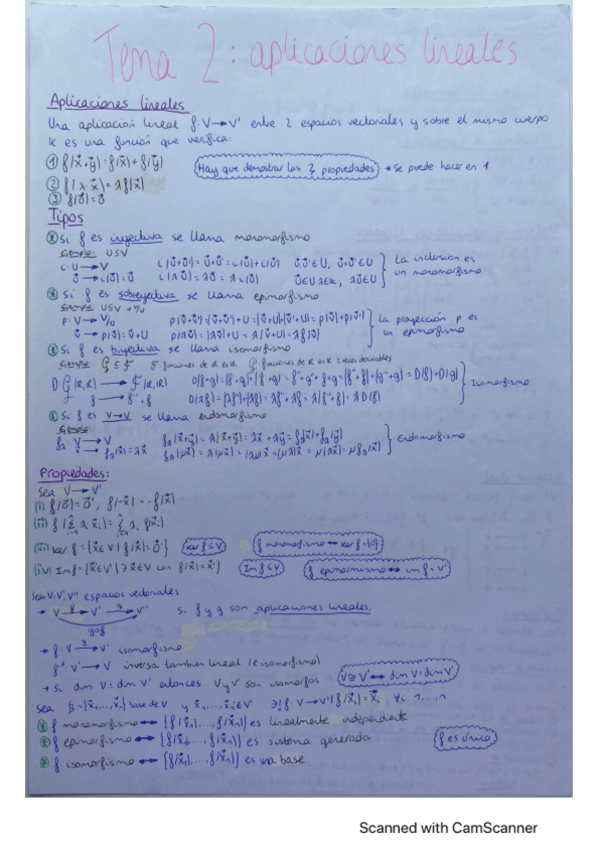 Tema 2: aplicaciones lineales
Aplicaciones lineales
Una aplicación lineal f: V→V' entre 2 espacios vectoriales y sobre el mismo cuerpo
K es una función que verifica:
① f(x⃗+y⃗)=f(x⃗)+f(y⃗)
Hay que demostrar las 2 propiedades → Se puede hacer en 1
② f(λx⃗)=λf(x⃗)
③ f(0⃗)=0⃗
Tipos
Si f es inyectiva se llama monomorfismo
Ejemplo: U≤V
i: U→V i(u⃗+v⃗)=u⃗+v⃗=i(u⃗)+i(v⃗) u⃗,v⃗∈U, u⃗+v⃗∈U La inclusion es
u⃗→i(u⃗)=u⃗ i(λu⃗)=λu⃗=λi(u⃗) u⃗∈U λ∈K, λu⃗∈U un monomorfismo
Si f es sobreyectiva se llama epimorfismo
Ejemplo: U≤V → V/U
p: V→V/U p(u⃗+v⃗)=(u⃗+v⃗)+U=(u⃗+U)+(v⃗+U)=p(u⃗)+p(v⃗) La proyección p es
un epimorfismo
Si f es biyectiva se llama isomorfismo
Ejemplo: G ≤ F F funciones de R en R G funciones de R en R 2 veces derivables
D: G(R,R) → F(R,R)
f → f''+f
Isomorfismo
Si f es V→V se llama endomorfismo
Ejemplo:
fλ: V→V fλ(x⃗+y⃗)=λ(x⃗+y⃗)=λx⃗+λy⃗=fλ(x⃗)+fλ(y⃗) Endomorfismo
x⃗→fλ(x⃗)=λx⃗ fλ(μx⃗)=λ(μx⃗)=(λμ)x⃗=(μλ)x⃗=μ(λx⃗)=μfλ(x⃗)
Propiedades:
Sea V→V'
(i) f(0⃗)=0⃗', f(-x⃗)=-f(x⃗)
(iii) ker f={x⃗∈V | f(x⃗)=0⃗'} ker f≤V f monomorfismo ↔ ker f={0}
(iv) Im f={x⃗'∈V' | ∃x⃗∈V con f(x⃗)=x⃗'} Im f≤V' f epimorfismo ↔ im f=V'
Sean V, V', V'' espacios vectoriales
→ V →f V' →g V'' Si f y g son aplicaciones lineales.
g∘f
→ f: V→V' isomorfismo
f⁻¹: V'→V inversa tambien lineal (e isomorfismo)
→ Si dim V=dim V' entonces V y V' son isomorfos V≅V' ↔ dim V=dim V'
Sea B={x⃗₁,...,x⃗ₙ} base de V y x⃗'₁,...,x⃗'ₙ∈V' ∃!f: V→V' | f(x⃗ᵢ)=x⃗'ᵢ ∀i=1,...,n
f monomorfismo ↔ {f(x⃗₁),...,f(x⃗ₙ)} es linealmente independiente
f epimorfismo ↔ {f(x⃗₁),...,f(x⃗ₙ)} es sistema generador f es único
f isomorfismo ↔ {f(x⃗₁),...,f(x⃗ₙ)} es una base
Scanned with CamScanner